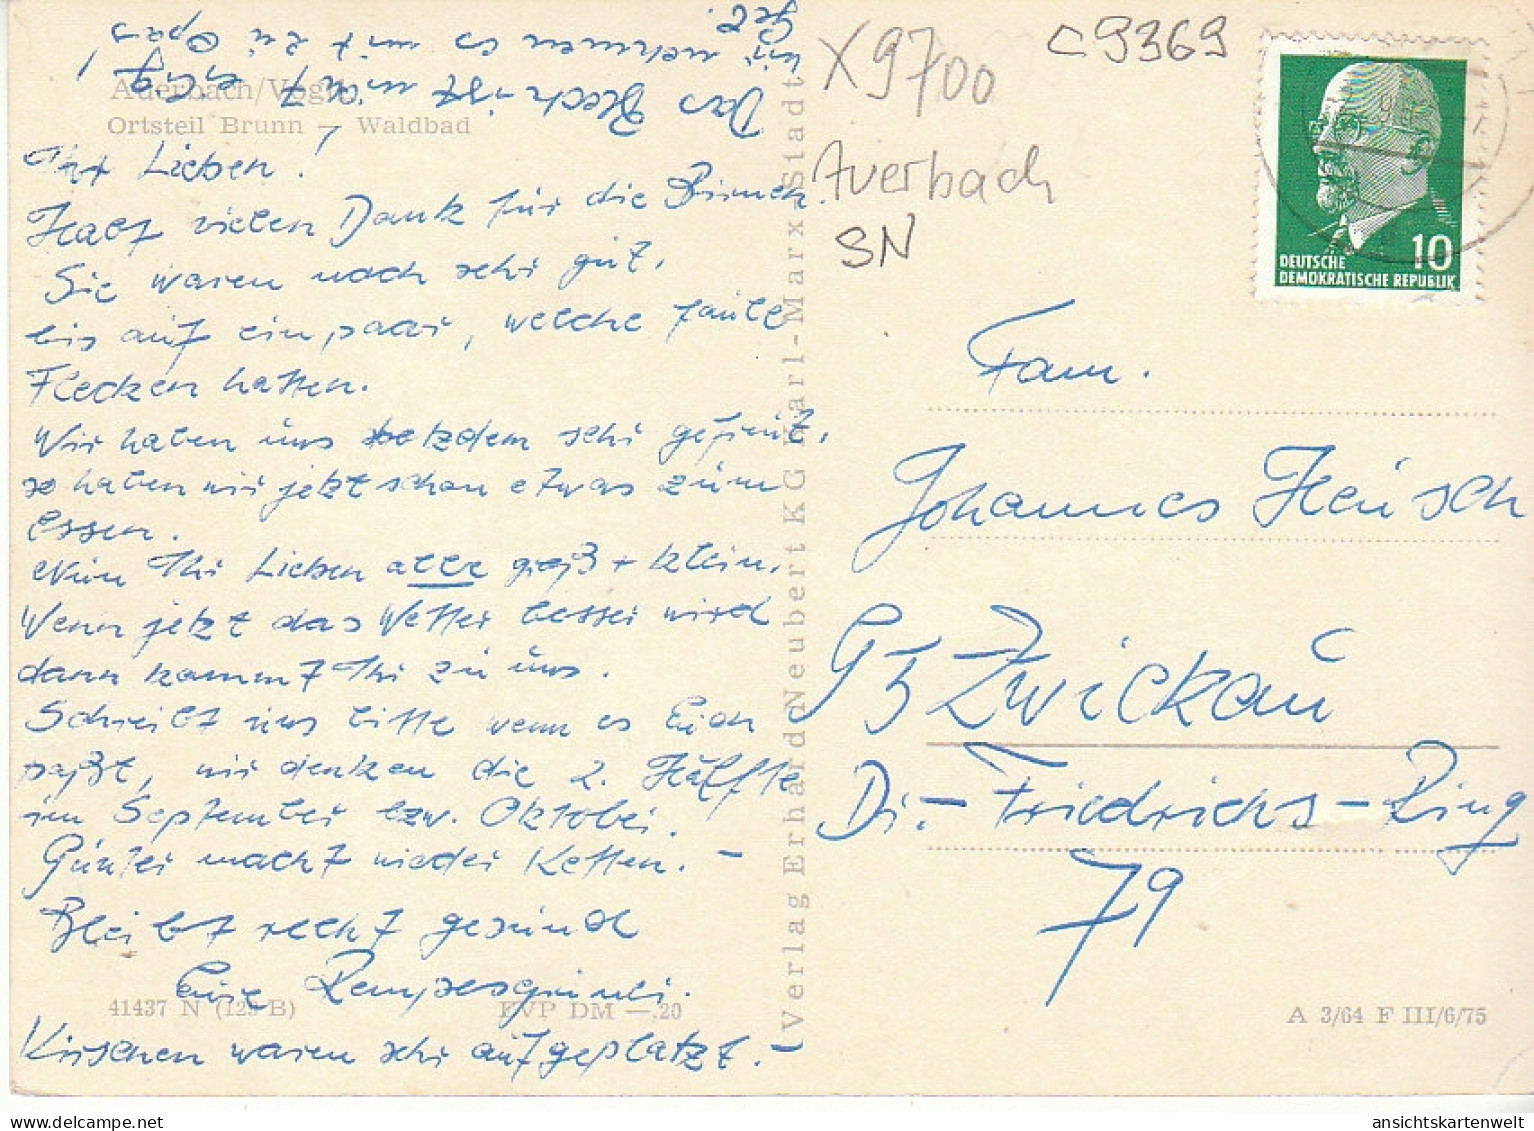 Auerbach/Vogtl.
Ortsteil Brunn — Waldbad
Ihr Lieben!
Habt vielen Dank für die Birnen.
Sie waren noch sehr gut,
bis auf ein paar, welche faule
Flecken hatten.
Wir haben uns trotzdem sehr gefreut,
so haben wir jetzt schon etwas zum
essen.
Nun Ihr Lieben alle groß + klein.
Wenn jetzt das Wetter besser wird
dann kommt Ihr zu uns.
Schreibt uns bitte wenn es Euch
paßt, wir denken die 2. Hälfte
im September bzw. Oktober.
Günter macht wieder Ketten. —
Bleibt recht gesund
Eure
Kirschen waren sehr aufgeplatzt. —
Das Blech ist nicht
wir nehmen es mit zu Opas
Geb.
41437 N (129 B)
EVP DM —.20
Verlag Erhard Neubert KG Karl-Marx-Stadt
X9700
C9369
Auerbach
SN
DEUTSCHE
DEMOKRATISCHE REPUBLIK
10
Fam.
Johannes Heusch
95 Zwickau
Dr.-Friedrichs-Ring
79
A 3/64 F III/6/75
ansichtskartenwelt
www.delcampe.net